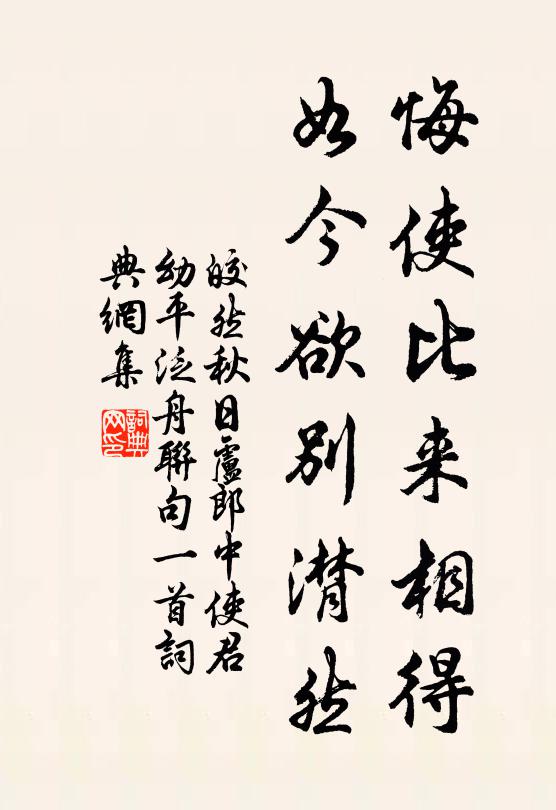 悔使比来相得
如今欲別潸然
皎然秋日盧郎中使君
幼平泛舟聯句一首詞
典網集
詞典网印